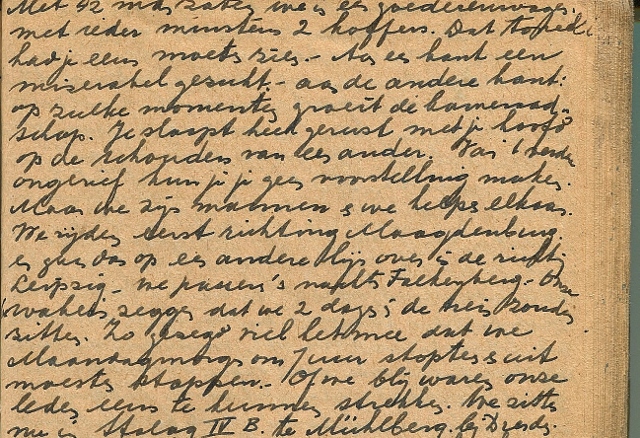 Met 42 man zaten we in een goederenwagen.
met ieder minstens 2 koffers. Dat tooneel
had je eens moeten zien - Aan een kant een
miserabel gezicht - aan de andere kant:
op zulke momenten groeit de kameraad-
schap. Je slaapt heel gerust met je hoofd
op de schouders van een ander. Van 't verdere
ongerief kun je je geen voorstelling maken.
Maar we zijn mannen & we helpen elkaar.
We rijden eerst richting Maagdenburg
en gaan dan op een andere lijn over in de richting
Leipzig - We passeren 's nachts Falkenberg - Onze
wakers zeggen dat we 2 dagen in de trein zouden
zitten. Zo gezegd viel het mee dat we
Maandagmorgen om 7 uur stopten & uit
moesten stappen - Of we blij waren onze
leden eens te kunnen strekken. We zitten
nu in Stalag IV B. te Mühlberg bij Dresden.